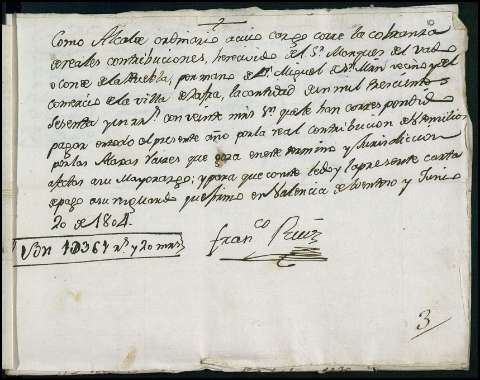 Como Alcalde ordinario a cuio cargo corre la cobranza
de reales contribuciones, he recivido del Sr. Marques del Vado
o Conde de la Puebla, por mano de Dn. Miguel de Sn. Mn. vecino y del
comercio de la villa de Zafra, la cantidad de un mil trescientos
sesenta y un rs. con veinte mrs. Vn. que le han correspondido
pagar en todo el presente año por la real contribucion de
por las Raices que goza en este termino y Jurisdiccion
afectos a su Mayorazgo; y para que conste le doy la presente carta
de pago a su resguardo que firmo en Valencia del ventoso y Junio
20 de 1804.
Son 1D361 rs. y 20 mrs.
Franco. Ruiz
3